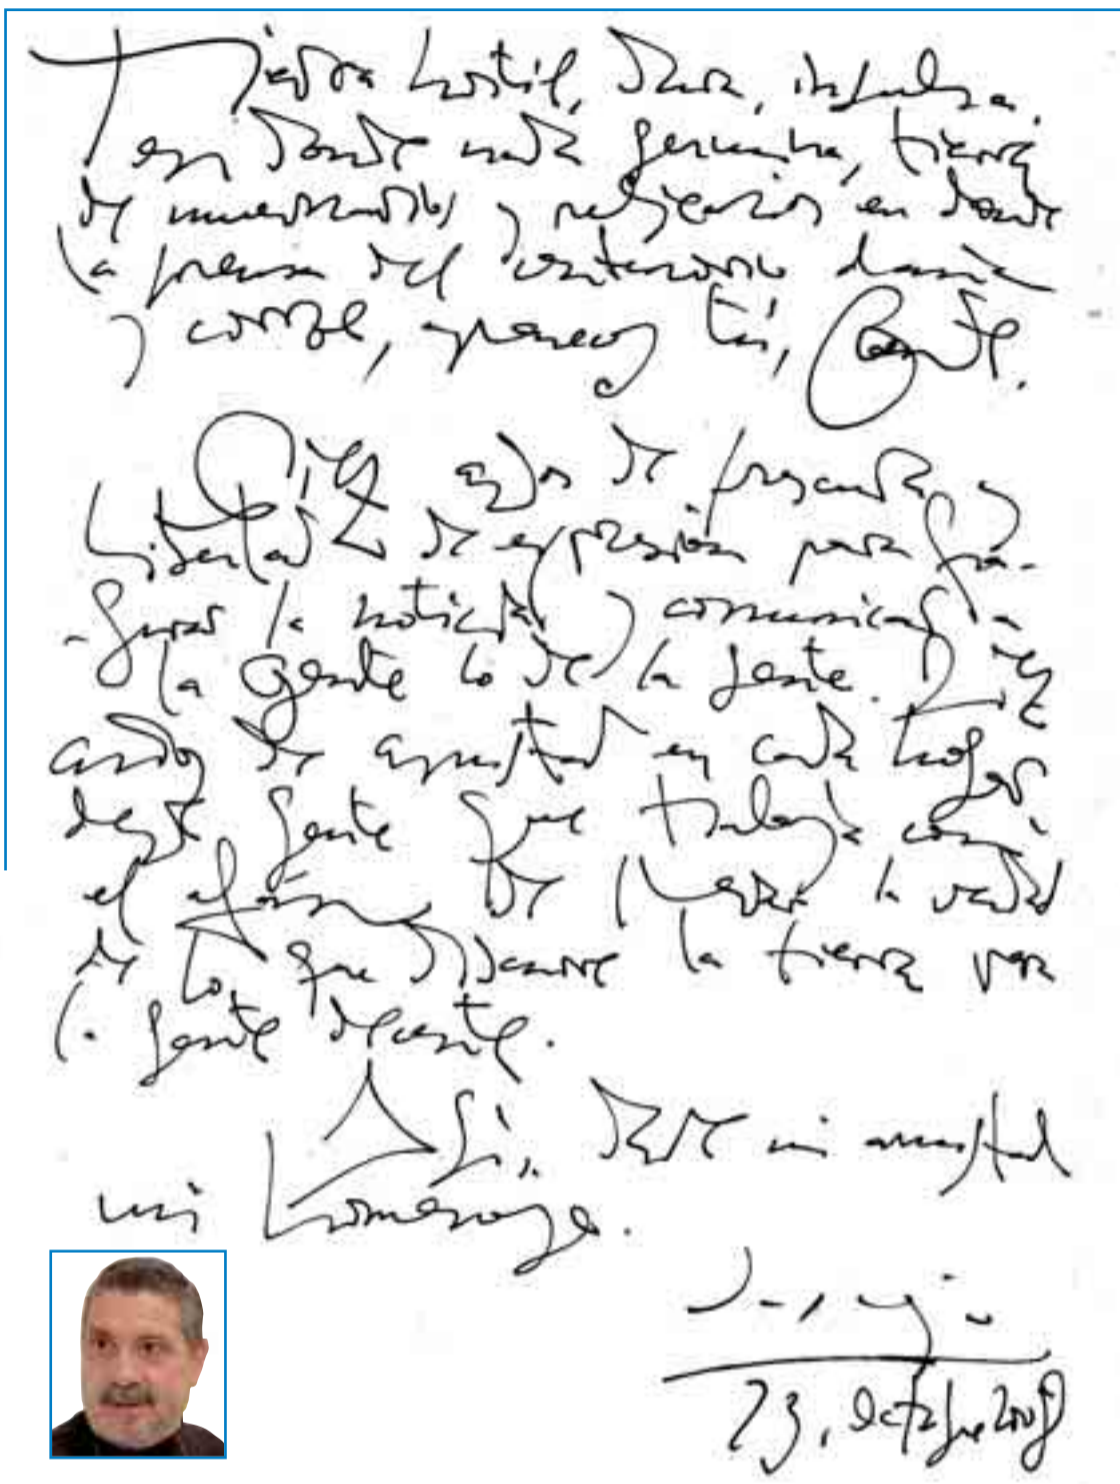 Tierra hostil, dura, insulsa,
en donde nada germina, tierra
de y en donde
la prensa del dama
y corroe, apareces tú, Gente.
Diez años de frescura y
libertad de expresión para fra-
-guar la noticia y comunicar a
la gente lo de la gente. Diez
años de amistad en cada hogar
de gente que trabaja con
el afán de llevar la verdad
de lo que discurre la tierra para
la gente decente.
A ti, desde mi amistad
mi homenaje.
23, octubre 2008